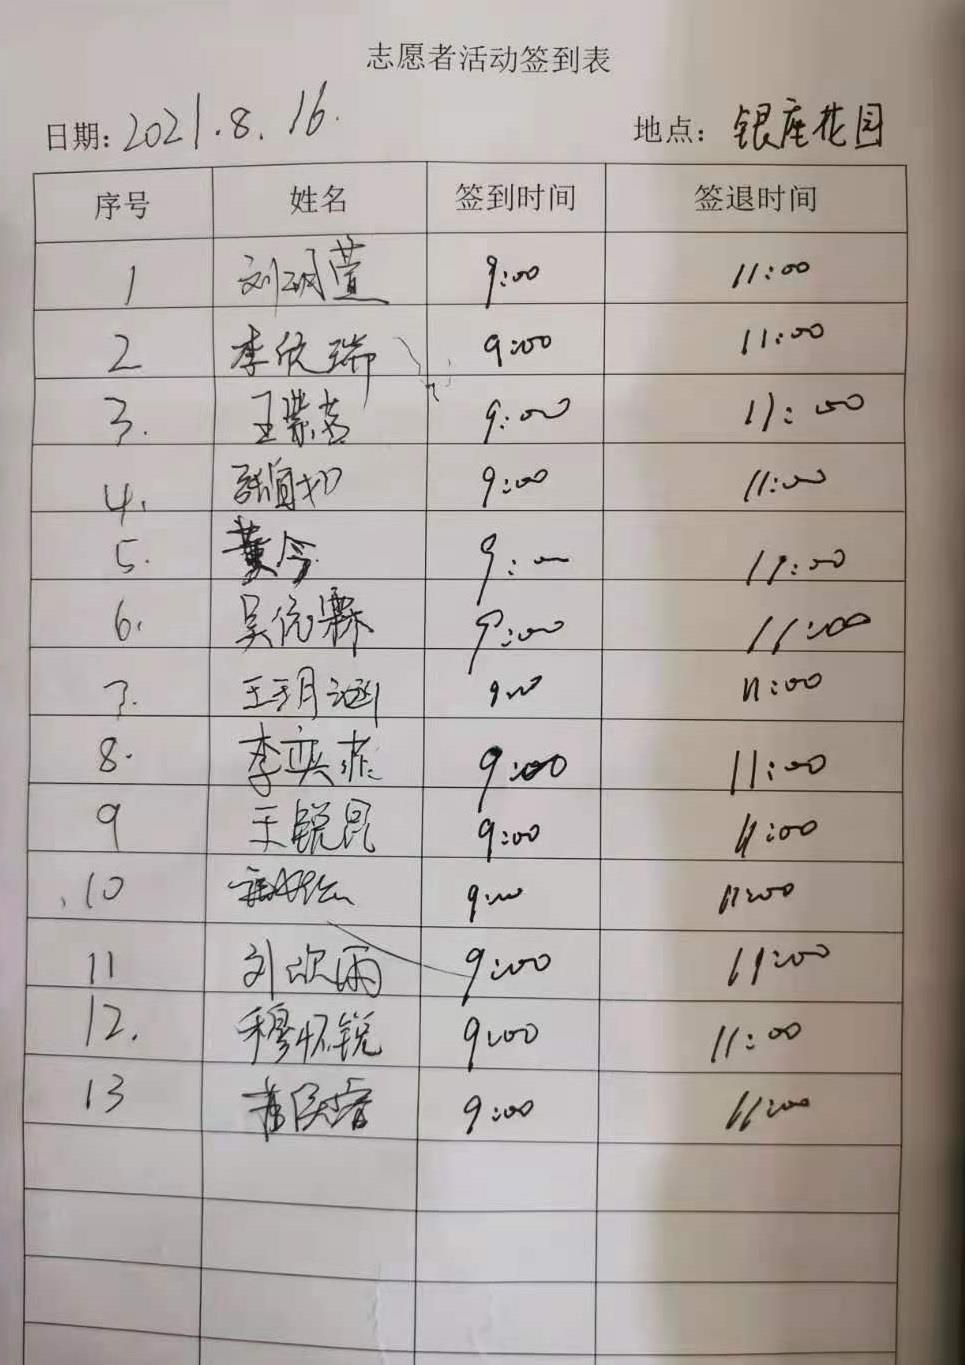 志愿者活动签到表
日期: 2021.8.16. 地点: 银座花园
序号 姓名 签到时间 签退时间
1 刘玥萱 9:00 11:00
2 李依瑞 9:00 11:00
3. 王紫 9:00 11:00
4. 9:00 11:00
5. 黄今 9:00 11:00
6. 吴依霖 9:00 11:00
7. 王玥涵 9:00 11:00
8. 李奕菲 9:00 11:00
9 王锐昆 9:00 11:00
10 9:00 11:00
11 刘欣雨 9:00 11:00
12. 穆怀锐 9:00 11:00
13 9:00 11:00